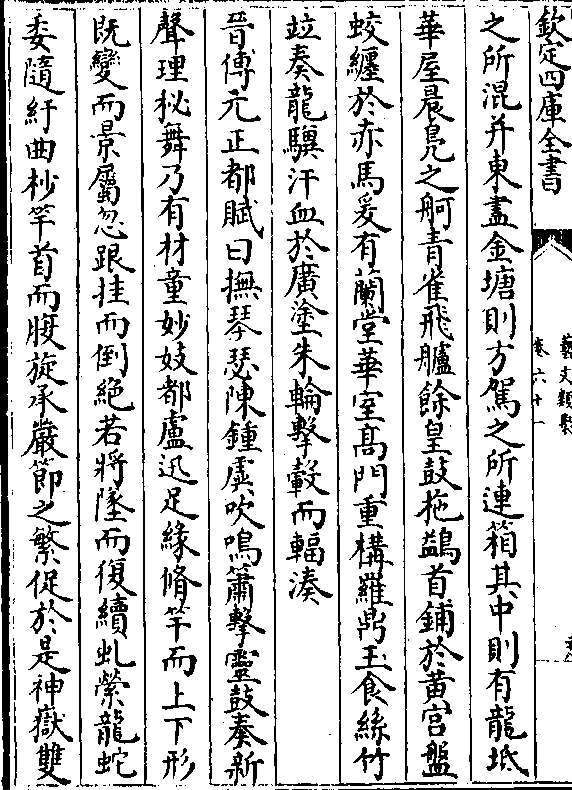 欽定四庫全書
藝文類聚
卷六十一
之所混并東盡金塘則方駕之所連箱其中則有龍坻
華屋晨鳧之舸青雀飛艫餘皇鼓拖鷁首鋪於黃宮盤
蛟纏於赤馬爰有蘭堂華室高門重構羅鼎玉食絲竹
竝奏龍驥汗血於廣塗朱輪擊轂而輻湊
晉傅元正都賦曰撫琴瑟陳鍾虡吹鳴簫擊靈鼓奏新
聲理秘舞乃有材童妙妓都盧迅足緣脩竿而上下形
既變而景屬忽跟挂而倒絕若將墜而復續虬縈龍蛇
委隨紆曲杪竿首而腹旋承嚴節之繁促於是神嶽雙